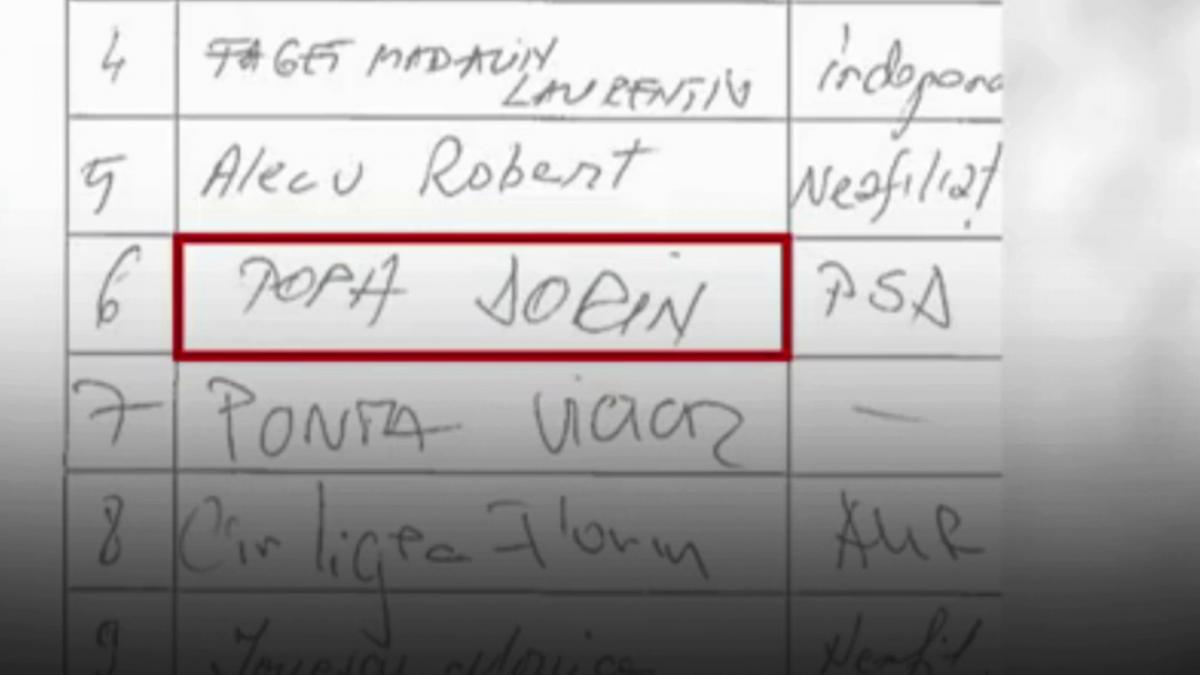 4 FAGET MADALIN independ
LAURENTIU
5 Alecu Robert Neafiliat
6 POPA SORIN PSD
7 PONTA VICTOR —
8 Cirligea Florin AUR
9 Neafil